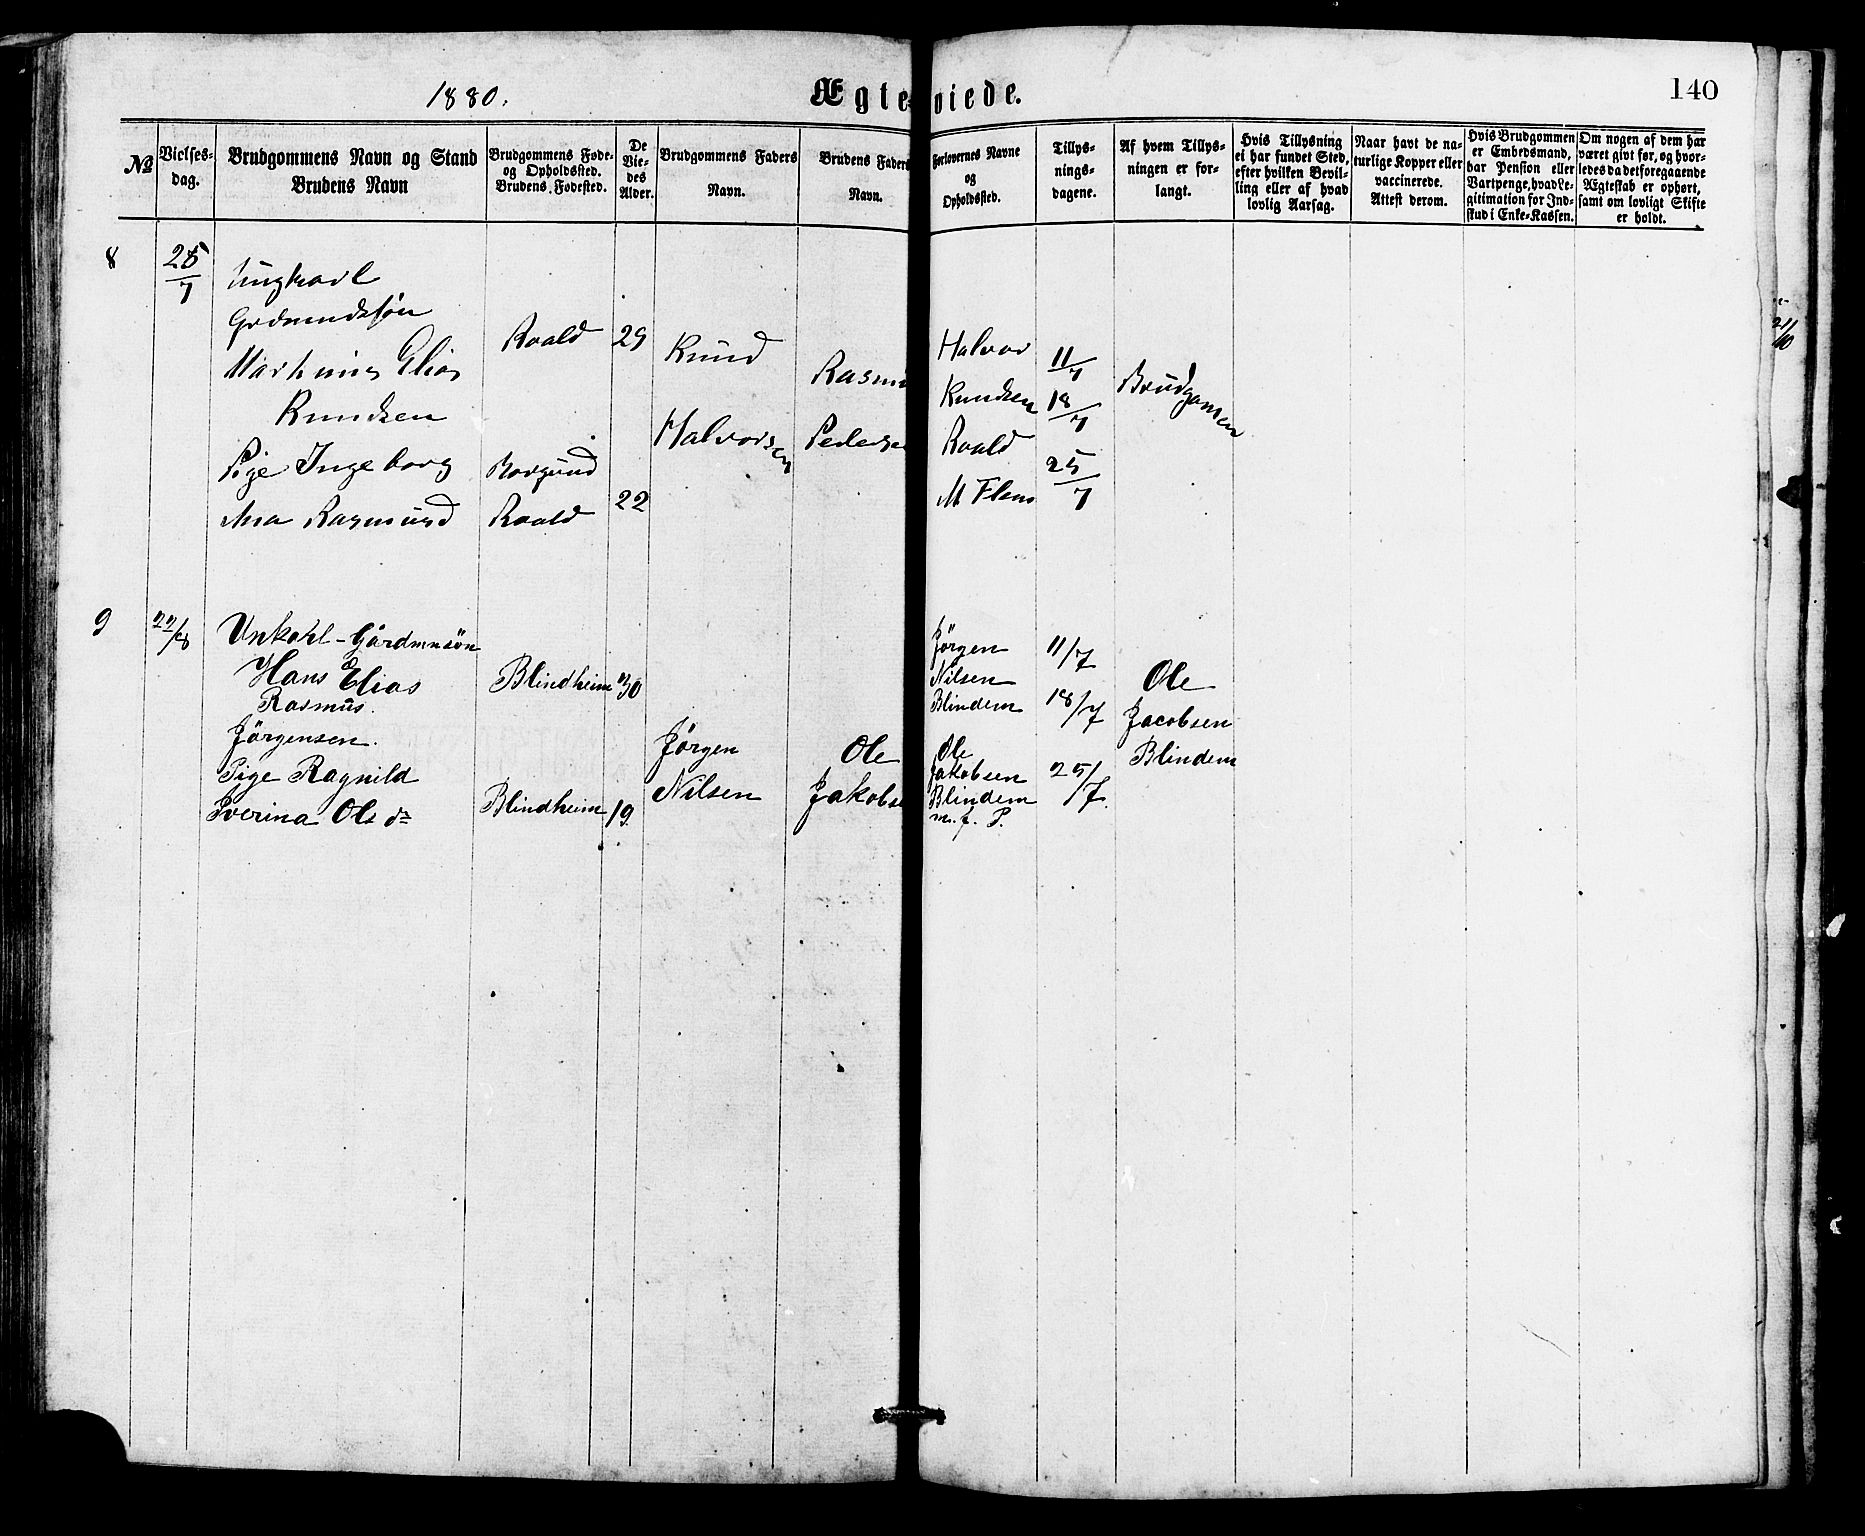 1880.
Ægteviede.
140
No
Vielses-
dag.
Brudgommens Navn og Stand
Brudens Navn
Brudgommens Føde-
og Opholdssted.
Brudens Fødested.
De
Vie-
des
Alder.
Brudgommens Faders
Navn.
Brudens Faders
Navn.
Forlovernes Navne
og
Opholdssted.
Tillys-
nings-
dagene.
Af hvem Tillys-
ningen er for-
langt.
Hvis Tillysning
ei har fundet Sted,
efter hvilken Bevil-
ling eller af hvad
lovlig Aarsag.
Naar havt de na-
turlige Kopper eller
vaccinerede.
Attest derom.
Hvis Brudgommen
er Embedsmand,
har Pension eller
Vartpenge, hvad Le-
gitimation for Ind-
skud i Enke-Kassen.
Om nogen af dem har
været givt før, og hvor-
ledes da det foregaaende
Ægteskab er ophørt,
samt om lovligt Skifte
er holdt.
8
25/7
Ungkarl
Grdmundssøn
Marthinus Elias
Knudsen
Pige Ingeborg
Ana Rasmusd
Roald
Borgund
Roald
29
22
Knud
Halvorsen
Rasmu
Pederse
Halvor
Knudsen
Roald
M Flem
11/7
18/7
25/7
Brudgomen
9
22/8
Unkahl - Gårdmnsön
Hans Elias
Rasmus.
Jørgensen.
Pige Ragnild
Iverina Ols dr
Blindheim
Blindheim
30
19
Jørgen
Nilsen
Ole
Jakobse
Jørgen
Nilsen
Blindem
Ole
Jakobsen
Blindem
m. f. P.
11/7
18/7
25/7
Ole
Jacobsen
Blindem